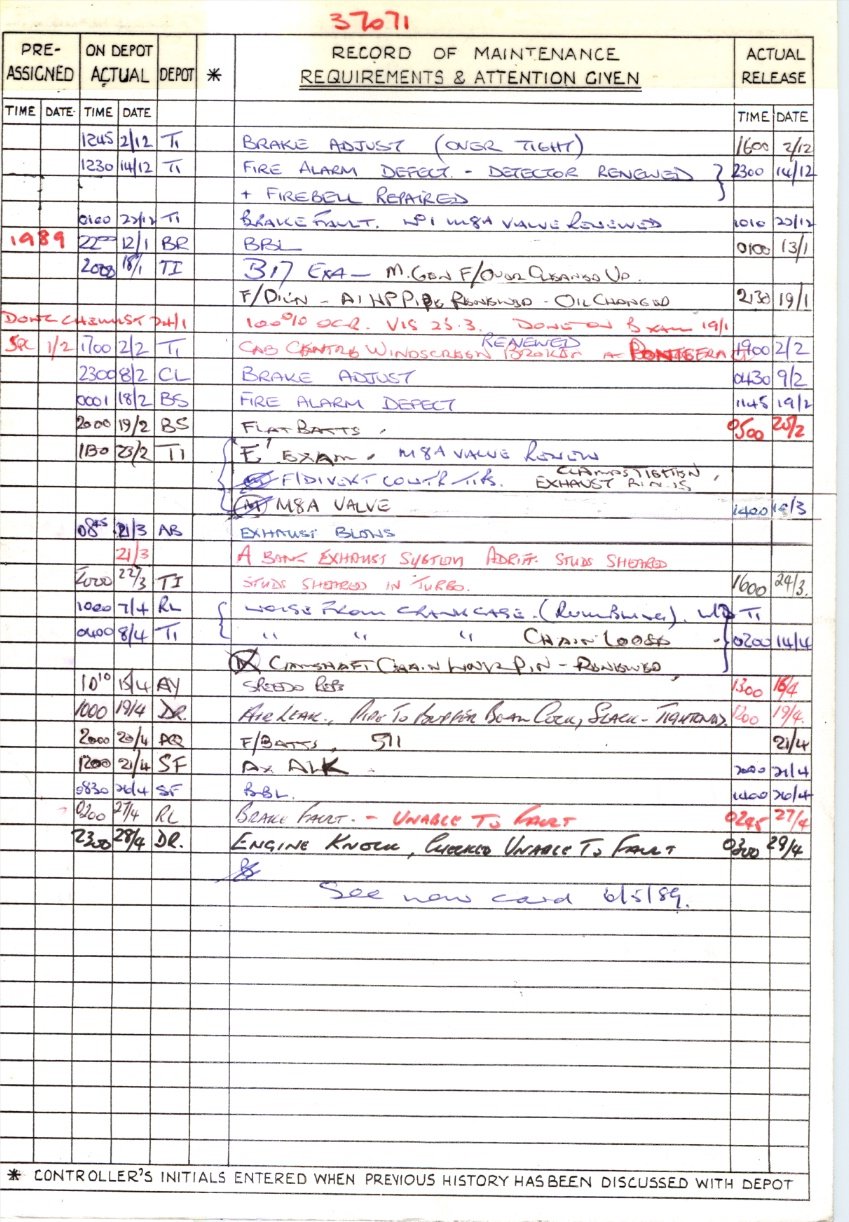 37071
PRE-ASSIGNED ON DEPOT ACTUAL DEPOT * RECORD OF MAINTENANCE REQUIREMENTS & ATTENTION GIVEN ACTUAL RELEASE
TIME DATE TIME DATE TIME DATE
1245 2/12 TI BRAKE ADJUST (OVER TIGHT) 1600 2/12
1230 14/12 TI FIRE ALARM DEFECT. - DETECTOR RENEWED 2300 14/12
+ FIREBELL REPAIRED
0100 22/12 TI BRAKE FAULT. No1 M8A VALVE RENEWED 1010 22/12
1989 2200 12/1 BR BBL 0100 13/1
2000 18/1 TI B17 EXA - M.GEN F/OVER CLEANED UP.
F/DIL'N - A1 HP PIPE RENEWED - OIL CHANGED 2130 19/1
100% OCR. VIS 25.3. DONE ON B EXAM 19/1
1/2 1700 2/2 TI CAB CENTRE WINDSCREEN BROKEN RENEWED 1900 2/2
2300 8/2 CL BRAKE ADJUST 0430 9/2
0001 18/2 BS FIRE ALARM DEFECT 1145 19/2
2000 19/2 BS FLAT BATTS. 0500 20/2
1130 23/2 TI E' EXAM. M8A VALVE RENEW
F/DIVERT CONTR TIPS. EXHAUST
M8A VALVE 1400 19/3
0845 21/3 AB EXHAUST BLOWS
21/3 A BANK EXHAUST SYSTEM ADRIFT. STUDS SHEARED
2000 22/3 TI STUDS SHEARED IN TURBO. 1600 24/3.
1000 7/4 RL NOISE FROM CRANKCASE. (RUMBLING). TI
0400 8/4 TI " " " CHAIN LOOSE 0200 14/4
CAMSHAFT CHAIN PIN - RENEWED
1010 15/4 AY SPEEDO REPS 1300 16/4
1000 19/4 DR. AIR LEAK., PIPE TO BOAM COCK, SLACK - TIGHTENED. 1200 19/4.
2000 20/4 F/BATTS, 511 21/4
1200 21/4 SF AX ALK 2000 21/4
0830 26/4 SF BBL. 26/4
0200 27/4 RL BRAKE FAULT. - UNABLE TO FAULT 0245 27/4
2300 28/4 DR. ENGINE KNOCK, CHECKED UNABLE TO FAULT 0300 29/4
See new card 6/5/89.
* CONTROLLER'S INITIALS ENTERED WHEN PREVIOUS HISTORY HAS BEEN DISCUSSED WITH DEPOT